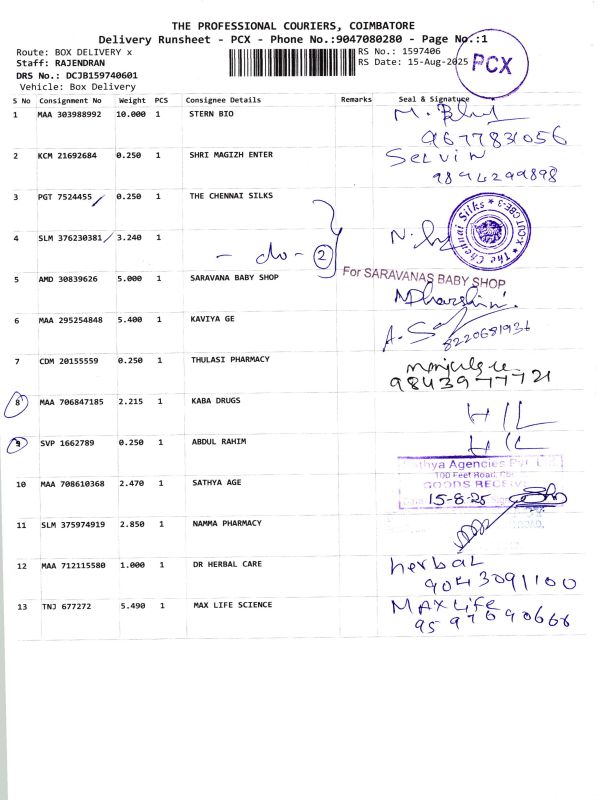 THE PROFESSIONAL COURIERS, COIMBATORE
Delivery Runsheet - PCX - Phone No.:9047080280 - Page No.:1
Route: BOX DELIVERY x
RS No.: 1597406
Staff: RAJENDRAN
RS Date: 15-Aug-2025
PCX
DRS No.: DCJB159740601
Vehicle: Box Delivery
S No Consignment No Weight PCS Consignee Details Remarks Seal & Signature
1 MAA 303988992 10.000 1 STERN BIO
9677831056
2 KCM 21692684 0.250 1 SHRI MAGIZH ENTER Selvin
9894299898
3 PGT 7524455 0.250 1 THE CHENNAI SILKS
The Chennai Silks
4 SLM 376230381 3.240 1
- do - 2
5 AMD 30839626 5.000 1 SARAVANA BABY SHOP
For SARAVANAS BABY SHOP
MDharshini.
6 MAA 295254848 5.400 1 KAVIYA GE
8220681936
7 CDM 20155559 0.250 1 THULASI PHARMACY
9843977721
8 MAA 706847185 2.215 1 KABA DRUGS H/L
9 SVP 1662789 0.250 1 ABDUL RAHIM H/L
10 MAA 708610368 2.470 1 SATHYA AGE
Sathya Agencies Pvt Ltd
100 Feet Road,
GOODS RECEIV
15-8-25
11 SLM 375974919 2.850 1 NAMMA PHARMACY
12 MAA 712115580 1.000 1 DR HERBAL CARE herbal
9043091100
13 TNJ 677272 5.490 1 MAX LIFE SCIENCE MAX Life
9597690666